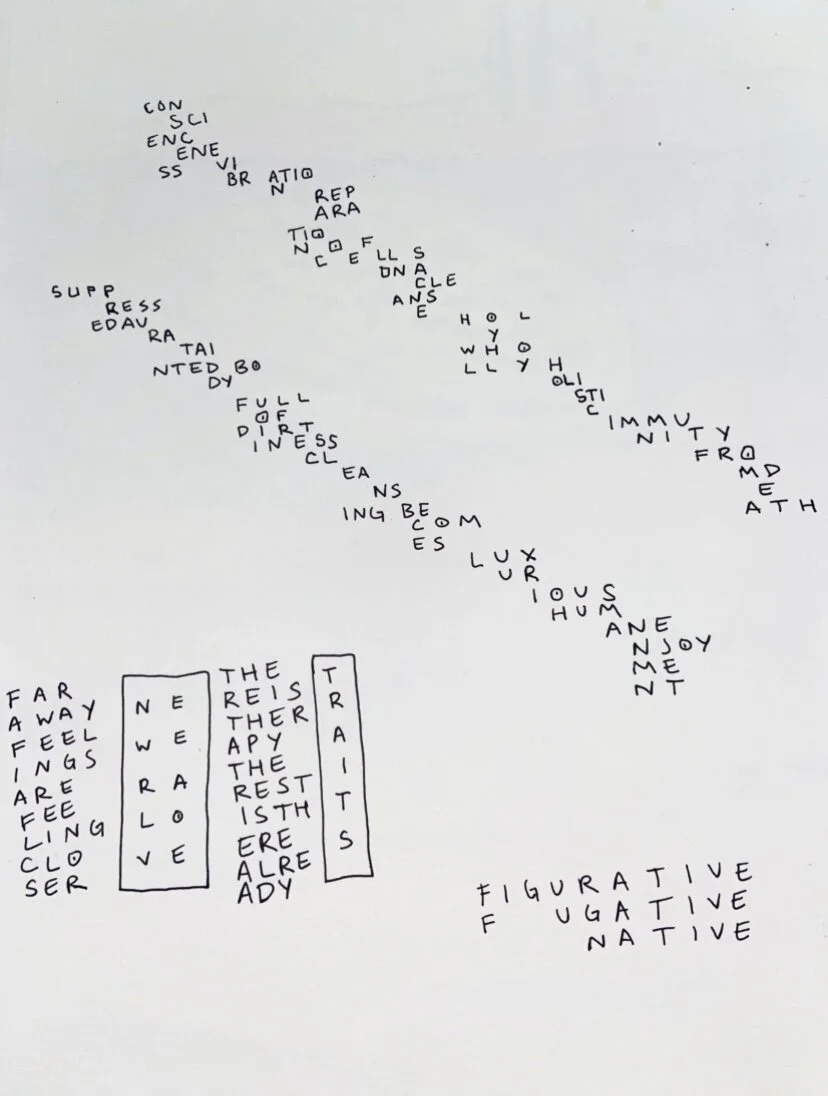 CON
SCI
ENC
ENE
SS VI
BR ATIO
N
REP
ARA
TIO
N O F
C E LL S
DN A
CLE
ANS
E
H O L
Y
W H O
L L Y H
OLI
STI
C
IMMU
NITY
FRO
MD
E
ATH
SUPP
RESS
EDAU
RA
TAI
NTED BO
DY
FULL
OF
DIRT
INESS
CL
EA
NS
ING BE
COM
ES
LUX
UR
IOUS
HUM
ANE
NJOY
ME
NT
FAR
AWAY
FEEL
INGS
ARE
FEE
LING
CLO
SER
N E
W E
R A
L O
V E
THE
REIS
THER
APY
THE
REST
ISTH
ERE
ALRE
ADY
T
R
A
I
T
S
FIGURATIVE
F UGATIVE
NATIVE